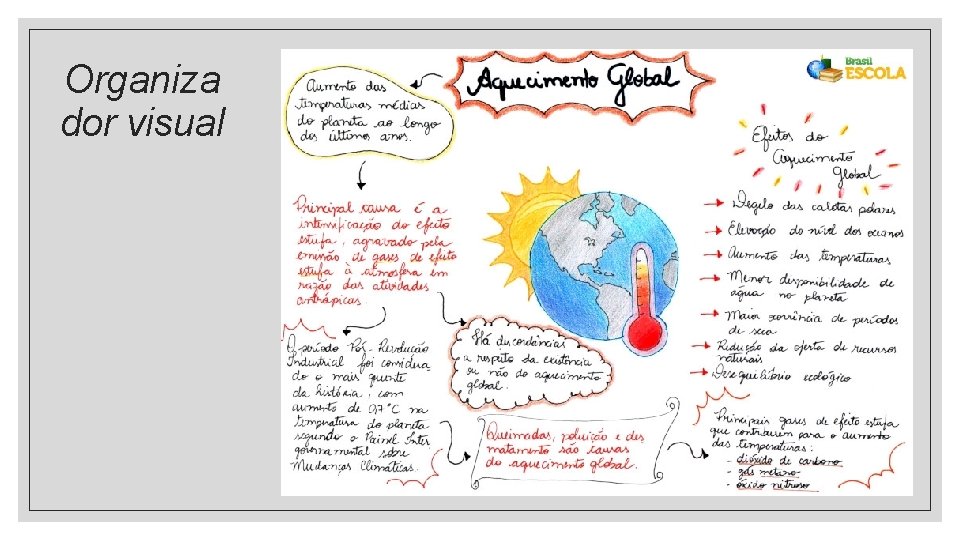 Organiza
dor visual
Aquecimento Global
Brasil
ESCOLA
Aumento das
temperaturas médias
do planeta ao longo
dos últimos anos.
Principal causa é a
intensificação do efeito
estufa, agravado pela
emissão de gases de efeito
estufa à atmosfera em
razão das atividades
antrópicas
O período Pós-Revolução
Industrial foi considera
do o mais quente
da história, com
aumento de 0,7 °C na
temperatura do planeta
segundo o Painel Inter
governamental sobre
Mudanças Climáticas.
Há discordâncias
a respeito da existência
ou não do aquecimento
global.
Queimadas, poluição e des
matamento são causas
do aquecimento global.
Efeitos do
Aquecimento
Global
Degelo das calotas polares
Elevação do nível dos oceanos
Aumento das temperaturas
Menor disponibilidade de
água no planeta
Maior ocorrência de períodos
de seca
Redução da oferta de recursos
naturais
Desequilíbrio ecológico
Principais gases de efeito estufa
que contribuem para o aumento
das temperaturas:
- dióxido de carbono
- gás metano
- óxido nitroso